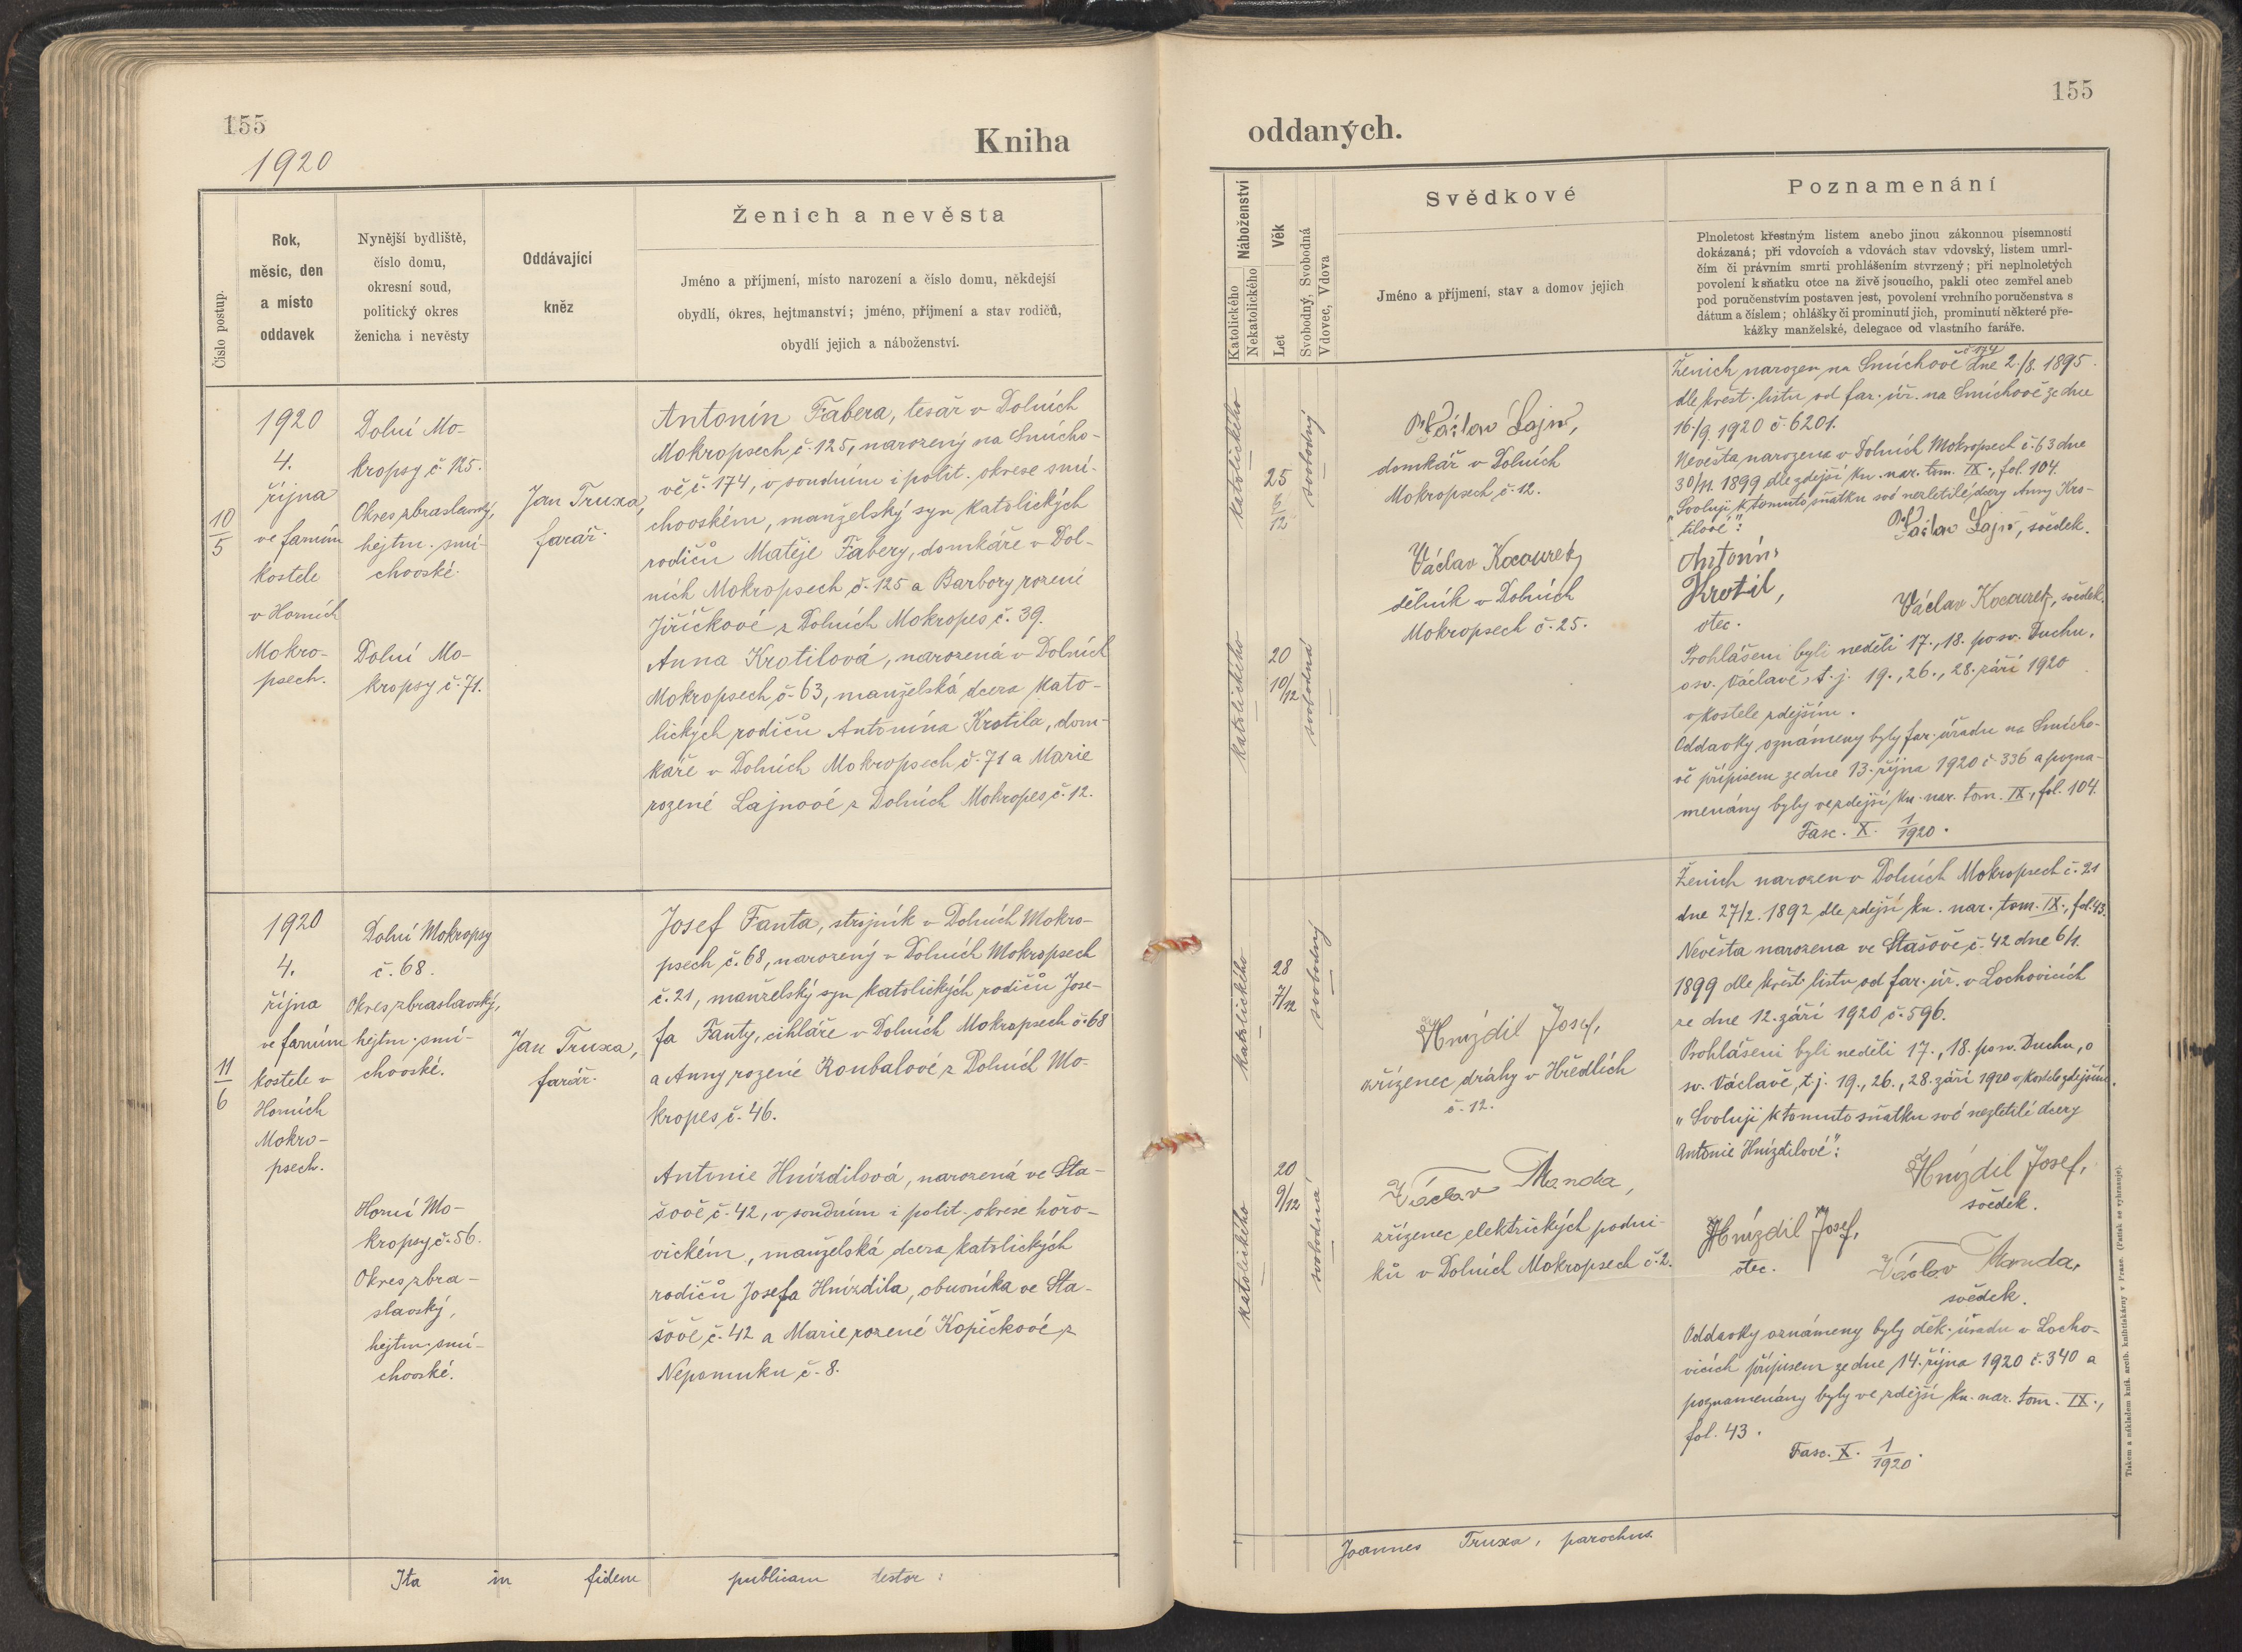 155
1920
Kniha
Číslo postup.
Rok,
měsíc, den
a místo
oddavek
Nynější bydliště,
číslo domu,
okresní soud,
politický okres
ženicha i nevěsty
Oddávající
kněz
Ženich a nevěsta
Jméno a příjmení, místo narození a číslo domu, někdejší
obydlí, okres, hejtmanství; jméno, příjmení a stav rodičů,
obydlí jejich a náboženství.
10
5
1920
4.
října
ve farním
kostele
v Horních
Mokro-
psech.
Dolní Mo-
kropsy č. 125.
Okres zbraslavský,
hejtm. smí-
chovské.
Dolní Mo-
kropsy č. 71.
Jan Truxa,
farář.
Antonín Fabera, tesař v Dolních
Mokropsech č. 125, narozený na Smícho-
vě č. 174, v soudním i polit. okrese smí-
chovském, manželský syn katolických
rodičů Matěje Fabery, domkáře v Dol-
ních Mokropsech č. 125 a Barbory rozené
Jiříčkové z Dolních Mokropes č. 39.
Anna Krotilová, narozená v Dolních
Mokropsech č. 63, manželská dcera kato-
lických rodičů Antonína Krotila, dom-
káře v Dolních Mokropsech č. 71 a Marie
rozené Lajnové z Dolních Mokropes č. 12.
11
6
1920
4.
října
ve farním
kostele v
Horních
Mokro-
psech.
Dolní Mokropsy
č. 68.
Okres zbraslavský,
hejtm. smí-
chovské.
Horní Mo-
kropsy č. 56.
Okres zbra-
slavský,
hejtm. smí-
chovské.
Jan Truxa,
farář.
Josef Fanta, strojník v Dolních Mokro-
psech č. 68, narozený v Dolních Mokropsech
č. 21, manželský syn katolických rodičů Jose-
fa Fanty, cihláře v Dolních Mokropsech č. 68
a Anny rozené Koubalové z Dolních Mo-
kropes č. 46.
Antonie Hnízdilová, narozená ve Sta-
šově č. 42, v soudním i polit. okrese hořo-
vickém, manželská dcera katolických
rodičů Josefa Hnízdila, obuvníka ve Sta-
šově č. 42 a Marie rozené Kopečkové z
Nepomuku č. 8.
Ita in fidem publicam testor:
155
oddaných.
Náboženství
Katolického
Nekatolického
Věk
Let
Svobodný, Svobodná
Vdovec, Vdova
Svědkové
Jméno a příjmení, stav a domov jejich
Poznamenání
Plnoletost křestným listem anebo jinou zákonnou písemností
dokázaná; při vdovcích a vdovách stav vdovský, listem umrl-
čím či právním smrti prohlášením stvrzený; při neplnoletých
povolení k sňatku otce na živě jsoucího, pakli otec zemřel aneb
pod poručenstvím postaven jest, povolení vrchního poručenstva s
dátum a číslem; ohlášky či prominutí jich, prominutí některé pře-
kážky manželské, delegace od vlastního faráře.
katolického
25
12
svobodný
katolického
20
10/12
svobodná
Václav Lajn,
domkář v Dolních
Mokropsech č. 12.
Václav Kocourek,
dělník v Dolních
Mokropsech č. 25.
Ženich narozen na Smíchově č. 174 dne 2./8. 1895
dle křest. listu od far. úř. na Smíchově ze dne
16./9. 1920 č. 6201.
Nevěsta narozena v Dolních Mokropsech č. 63 dne
30/11. 1899 dle zdejší kn. nar. tom. IX., fol. 104.
"Svoluji k tomuto sňatku své nezletilé dcery Anny Kro-
tilové":
Václav Lajn, svědek.
Antonín
Krotil,
otec.
Václav Kocourek, svědek.
Prohlášeni byli neděli 17., 18. po sv. Duchu,
o sv. Václavě, t. j. 19., 26., 28. září 1920
v kostele zdejším.
Oddavky oznámeny byly far. úřadu na Smícho-
vě přípisem ze dne 13. října 1920 č. 336 a pozna-
menány byly ve zdejší kn. nar. tom. IX, fol. 104.
Fasc. X. 1/1920.
katolického
28
7/12
svobodný
katolického
20
9/12
svobodná
Hnízdil Josef,
zřízenec dráhy v Hředlích
č. 12.
Václav Manda,
zřízenec elektrických podni-
ků v Dolních Mokropsech č. 2.
Ženich narozen v Dolních Mokropsech č. 21
dne 27/2. 1892 dle zdejší kn. nar. tom. IX., fol. 43.
Nevěsta narozena ve Stašově č. 42 dne 6/1.
1899 dle křest. listu od far. úř. v Lochovicích
ze dne 12. září 1920 č. 596.
Prohlášeni byli neděli 17., 18. po sv. Duchu, o
sv. Václavě, t. j. 19., 26., 28. září 1920 v kostele zdejším.
"Svoluji k tomuto sňatku své nezletilé dcery
Antonie Hnízdilové":
Hnízdil Josef,
svědek.
Hnízdil Josef,
otec.
Václav Manda,
svědek.
Oddavky oznámeny byly děk. úřadu v Locho-
vicích přípisem ze dne 14. října 1920 č. 340 a
poznamenány byly ve zdejší kn. nar. tom. IX.,
fol. 43.
Fasc. X. 1/1920.
Joannes Truxa, parochus.
Tiskem a nákladem kníž. arcib. knihtiskárny v Praze. (Patisk se vyhrazuje).